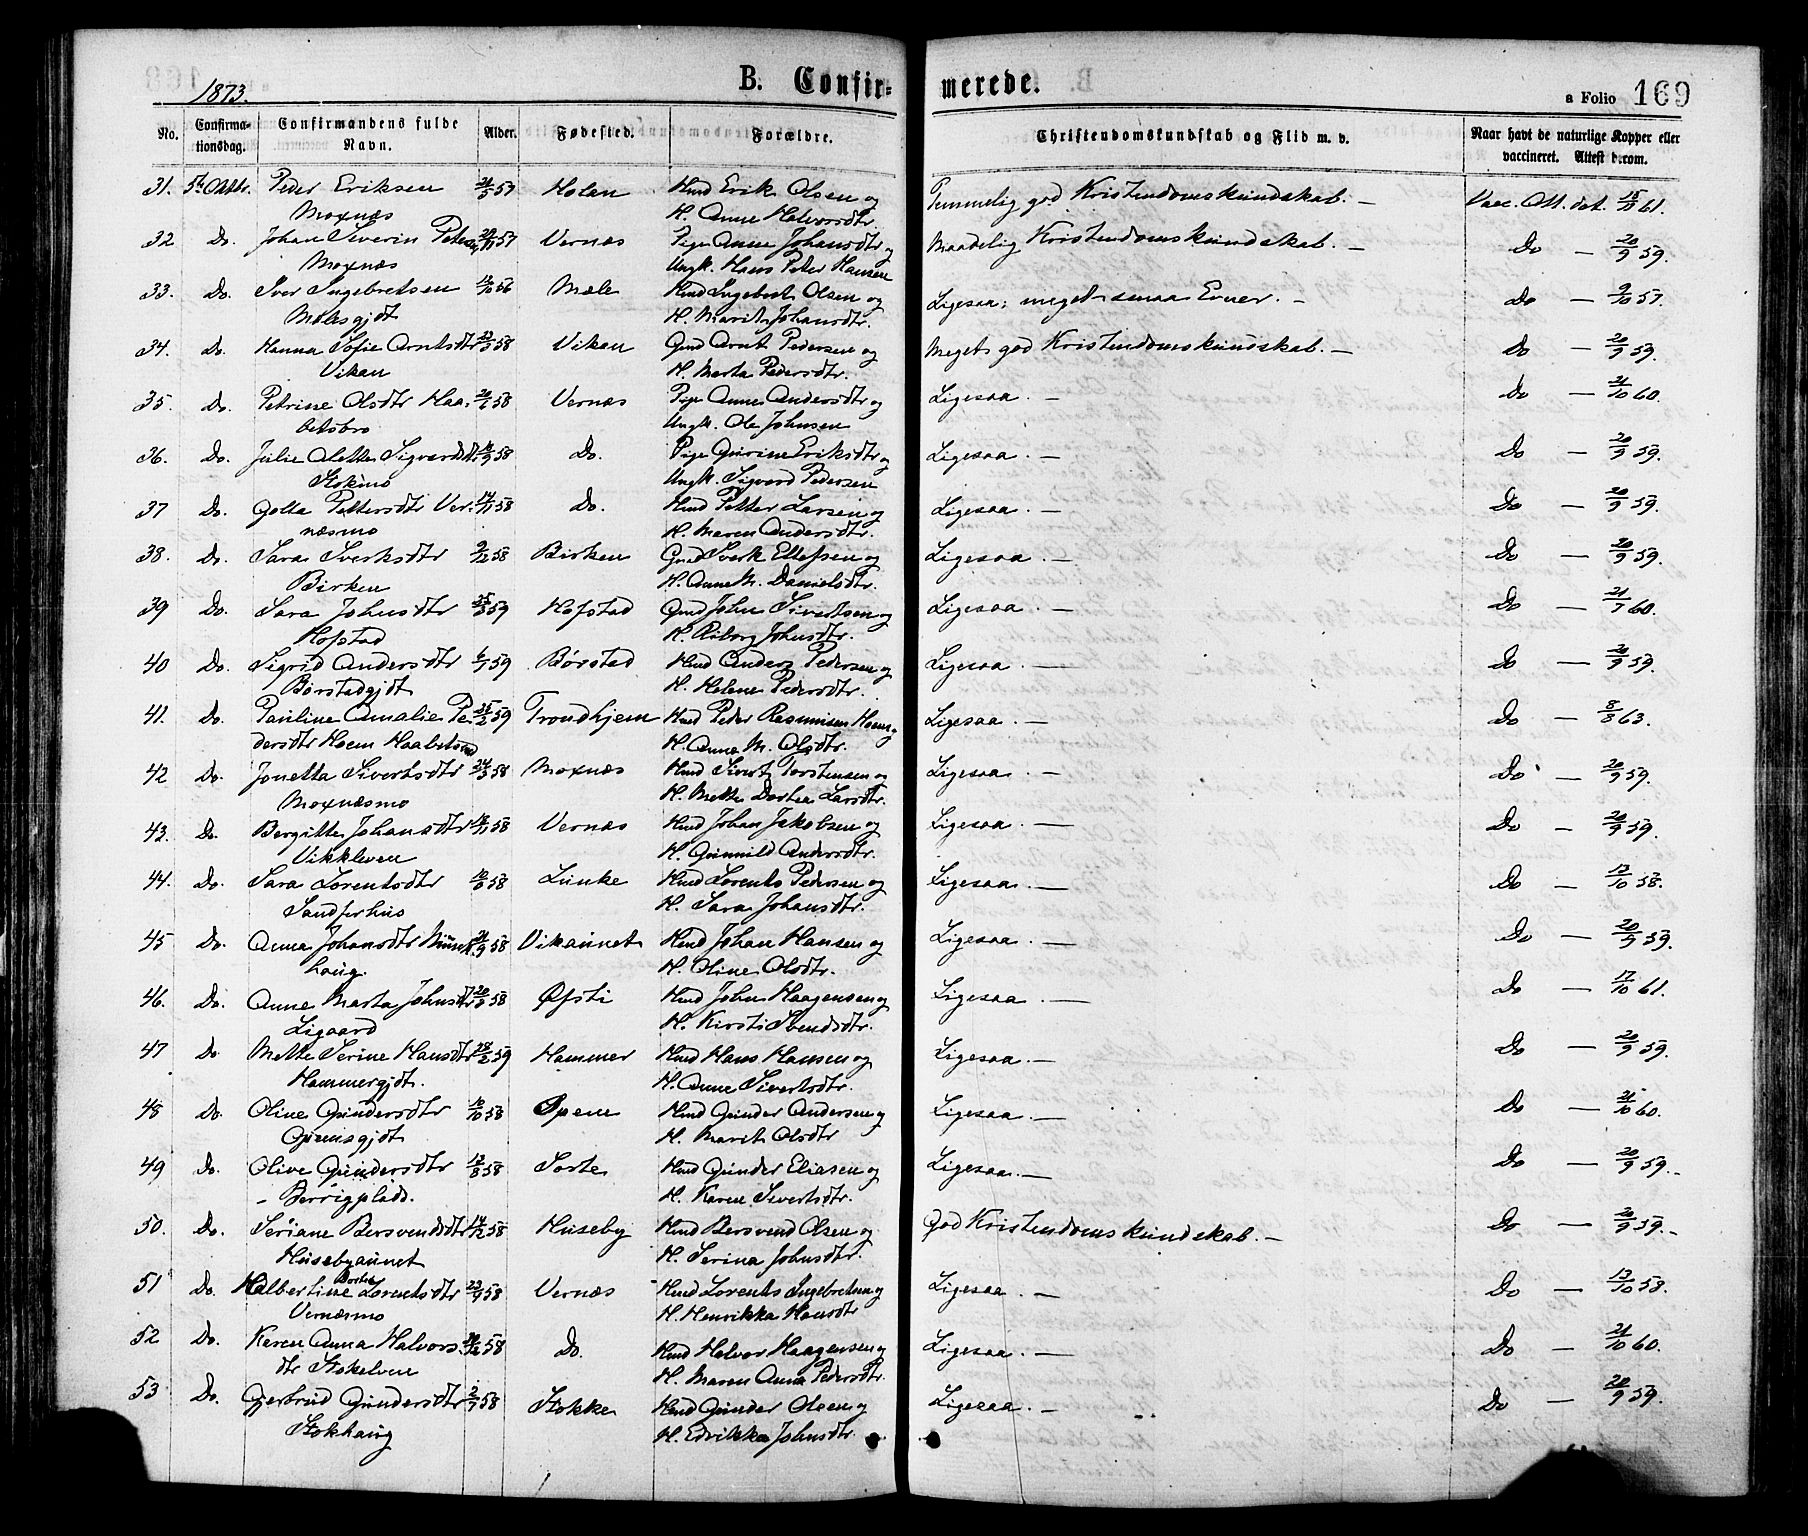 1873.
B. Confir=
merede.
a Folio 169
No. Confirma-tionsdag. Confirmandens fulde Navn. Alder. Fødested. Forældre. Christendomskundskab og Flid m. v. Naar havt de naturlige Kopper eller vaccineret. Attest b.rom.
31. 5te Oktbr. Peder Eriksen 57 Holan Hmd Erik Olsen og Temmelig god Kristendomskundskab. — Vacc. Att. dat. 15/10 61.
Moxnæs H. Anne Halvorsdtr.
32 Do. Johan Severin Peter 57 Vernæs Pige Anne Johansdtr og Maadelig Kristendomskundskab. — Do — 20/9 59.
Moxnæs Ungk. Hans Peter Hansen
33. Do. Iver Ingebretsen 56 Mæle Hmd Ingebret Olsen og Ligesaa; meget smaa Evner. — Do — 9/10 57.
Mælesgjdt H. Marit Johansdtr.
34. Do. Hanna Sofie Arntsdtr 58 Vikan Gmd Arnt Pedersen og Meget god Kristendomskundskab. — Do — 20/9 59.
Vikan H. Marta Pedersdtr.
35. Do. Petrine Olsdtr Haa- 58 Vernæs Pige Anne Andersdtr og Ligesaa. — Do — 21/10 60.
betsbro Ungk. Ole Johnsen
36. Do. Julie Alette Sigvardsdtr 58 Do. Pige Gurine Eriksdtr og Ligesaa. — Do — 20/9 59.
Stokmo Ungk. Sigvard Pedersen
37 Do. Golla Pettersdtr Ver- 58 Do. Hmd Petter Larsen og Ligesaa. — Do — 20/9 59.
næsmo H. Maren Andersdtr.
38. Do. Sara Sverksdtr 9/12 58 Birken Gmd Sverk Ellefsen og Ligesaa. — Do — 20/9 59.
Birken H. Anne M. Danielsdtr.
39 Do. Sara Johnsdtr 59 Hofstad Gmd John Sivertsen og Ligesaa. — Do — 21/7 60.
Hofstad H. Riborg Johnsdtr.
40 Do. Sigrid Andersdtr 59 Børstad Hmd Anders Pedersen og Ligesaa. — Do — 20/9 59.
Børstadgjdt H. Helene Pedersdtr.
41. Do. Pauline Amalie Pe- 25/2 59 Trondhjem Hmd Peder Rasmusen Hoem og Ligesaa. — Do — 8/8 63.
dersdtr Hoem H. Anne M. Olsdtr.
42 Do. Jonetta Sivertsdtr 58 Moxnæs Hmd Sivert Torstensen og Ligesaa. — Do — 20/9 59.
Moxnæsmo H. Mette Dorthea Larsdtr.
43. Do. Bergitte Johansdtr 58 Vernæs Hmd Johan Jakobsen og Ligesaa. — Do — 20/9 59.
Vikkleven H. Gunnild Andersdtr.
44. Do. Sara Lorentsdtr 58 Lunke Hmd Lorents Pedersen og Ligesaa. — Do — 13/10 58.
Sandferhus H. Sara Johansdtr.
45 Do. Anna Johansdtr 58 Vikaunet Hmd Johan Hansen og Ligesaa. — Do — 20/9 59.
haug. H. Oline Olsdtr.
46. Do. Anne Marta Johnsdtr 58 Øfsti Hmd John Haagensen og Ligesaa. — Do — 17/10 61.
Ligaard H. Kirsti Svendsdtr.
47 Do. Mette Serine Hansdtr 28/2 59 Hammer Hmd Hans Hansen og Ligesaa. — Do — 20/9 59.
Hammergjdt. H. Anne Sivertsdtr.
48 Do. Oline Gundersdtr 58 Opem Hmd Gunder Andersen og Ligesaa. — Do — 21/10 60.
H. Marit Olsdtr
49 Do. Olive Gundersdtr 12/8 58 Sorte Hmd Gunder Eliasen og Ligesaa. — Do — 20/9 59.
- Berrigplads. H. Karen Sivertsdtr.
50. Do. Seriane Bersvendsdtr 14/12 58 Huseby Hmd Bersvend Olsen og God Kristendomskundskab. — Do — 20/9 59.
Husebyaunet H. Serina Johnsdtr.
51 Do. Halbertine Dortea Lorentsdtr 23/9 58 Vernæs Hmd Lorents Ingebretsen og Ligesaa. — Do — 13/10 58.
Vernæsmo H. Henrikka Hansdtr
52 Do. Karen Anna Halvors- 58 Do. Hmd Halvor Haagensen og Ligesaa. — Do — 21/10 60.
dtr Stokelven H. Maren Anna Pedersdtr.
53 Do. Gjertrud Gundersdtr 58 Stokke Hmd Gunder Olsen og Ligesaa. — Do — 20/9 59.
Stokhaug H. Edvikka Johnsdtr.